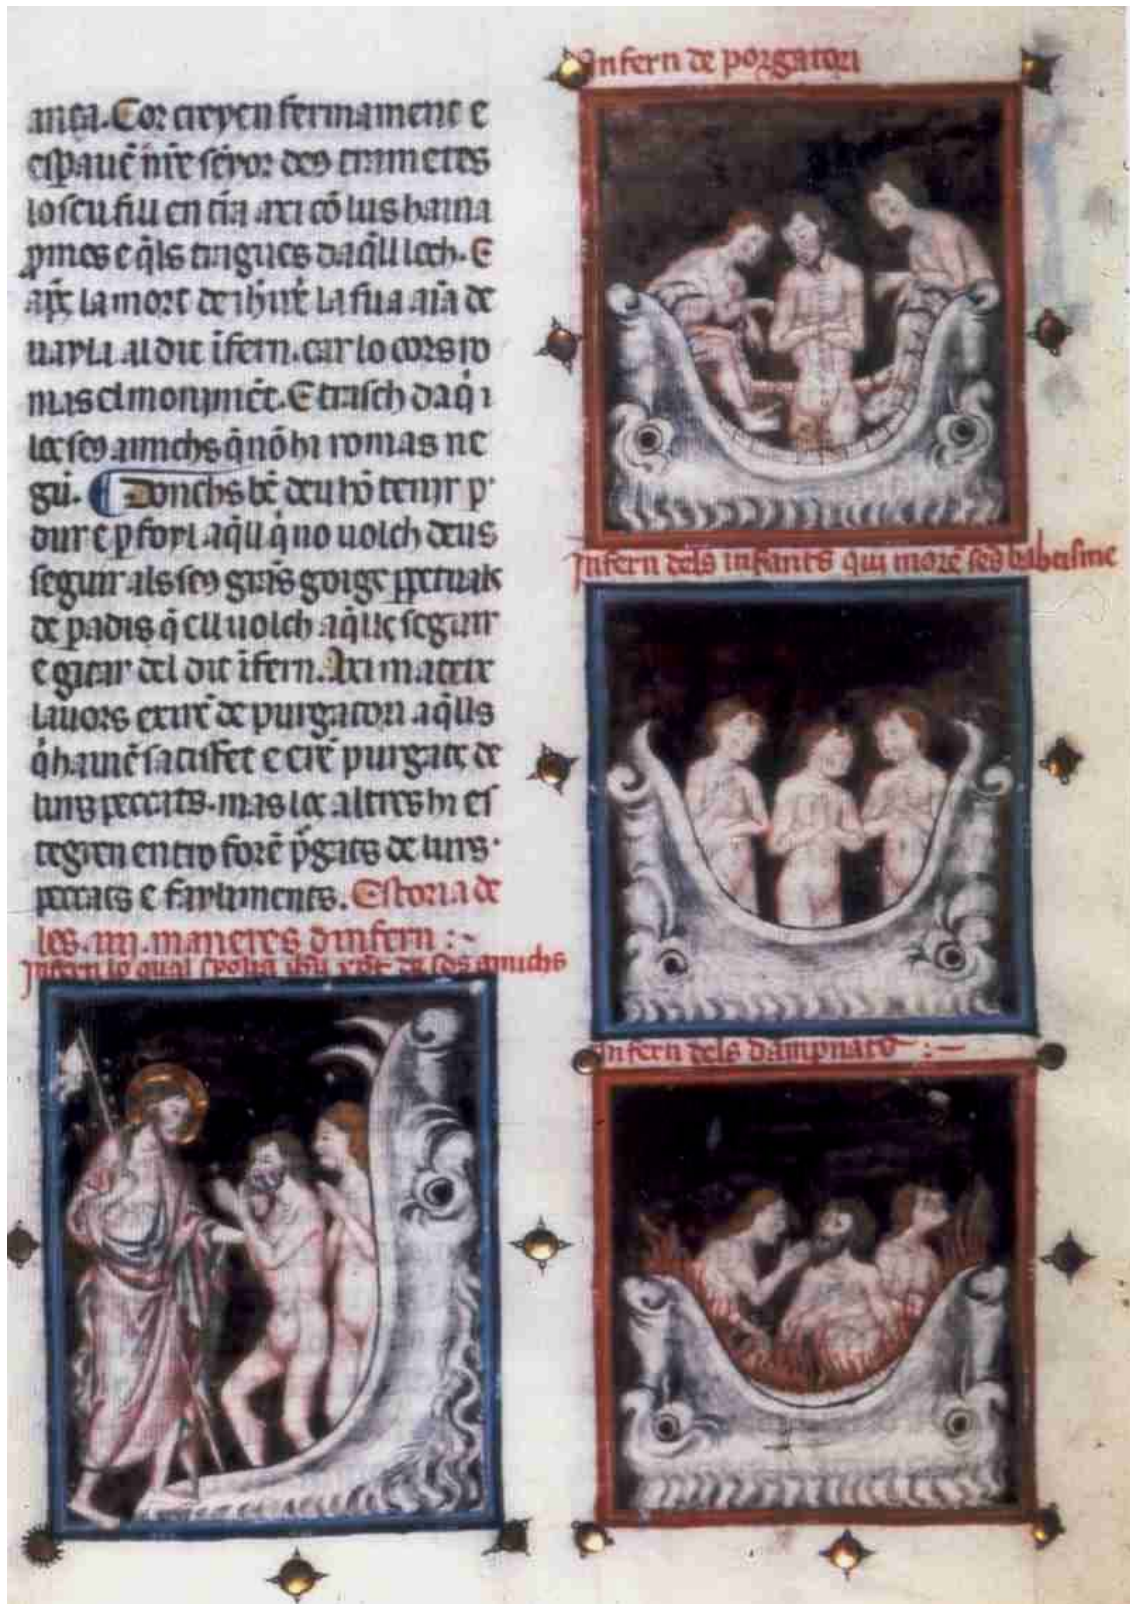 ança. Cor creyen fermament e
esperauē nr̄e senyor deus trametes
lo seu fill en t̄ra axi cō lus hauia
p̄mes e q̄ls tragues daq̄ll loch. E
ap̄s la mort de ih̄u x̄r̄t la sua aīa de
uayla al dit īfern. car lo cors ro
mas el moniment. E trasch daq̄i
los seus amichs q̄ nō hi romas ne
gū. Donchs bē deu hō tenir p̄
dur e p̄ foyl aq̄ll q̄ no uolch deus
seguir als seus grās goigs ppetuals
de padis q̄ ell uolch aq̄lls seguir
e gitar del dit īfern. Axi mateix
lauors exirē de purgatori aq̄lls
q̄ hauiē satisfet e erē purgats de
lurs peccats. mas los altres hi es
tegren entro forē p̄gats de lurs
peccats e fayliments. Estoria de
les .iiii. maneres dinfern :~
Infern lo qual spolia ih̄u xp̄st de sos amichs
Infern de porgatori
Infern dels infants qui morē sēs babtisme
Infern dels dampnats :~